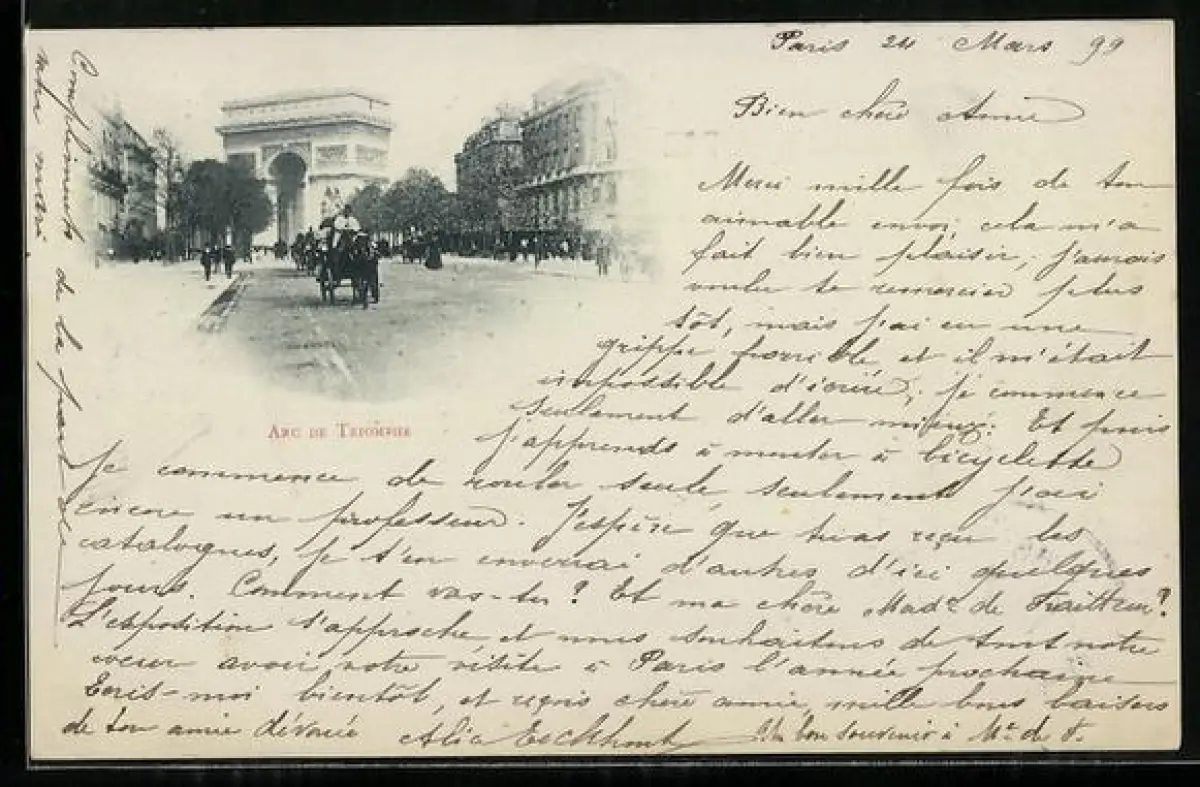 Paris 24 Mars 99
Bien chère Amie
Merci mille fois de ton
aimable envoi, cela m'a
fait bien plaisir, j'aurais
voulu te remercier plus
tôt, mais j'ai eu une
grippe horrible et il m'était
impossible d'écrire, je commence
seulement d'aller mieux. Et puis
j'apprends à monter à bicyclette
ARC DE TRIOMPHE
Je commence de rouler seule, seulement j'ai
encore un professeur. J'espère que tu as reçu les
catalogues, je t'en enverrai d'autres d'ici quelques
jours. Comment vas-tu? Et ma chère Mad. de
L'exposition s'approche, et nous souhaitons de tout notre
coeur avoir votre visite à Paris l'année prochaine
Ecris-moi bientôt, et reçois chère amie, mille bons baisers
de ton amie dévouée Un bon souvenir à Mr de F.
Compliments de la part de
mon mari